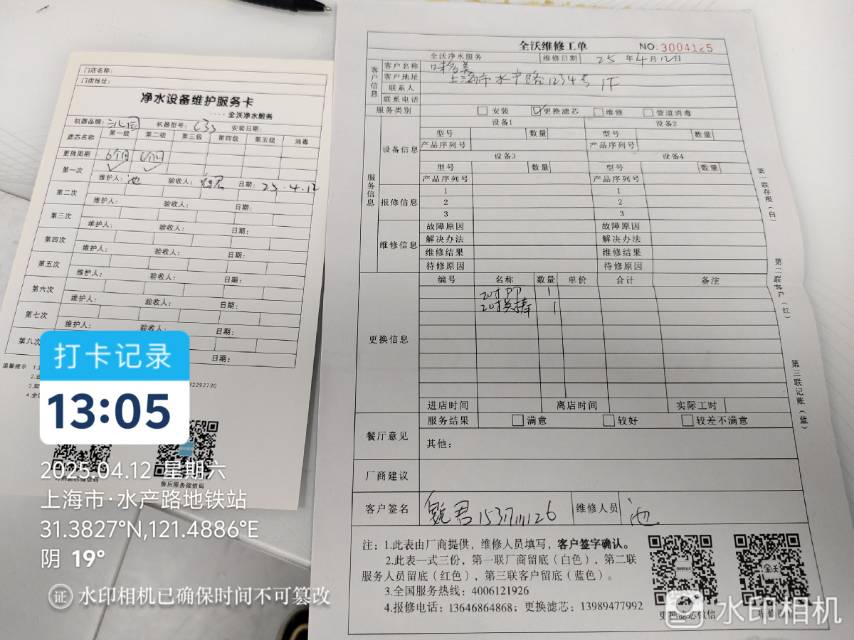 门店名称:
门店地址:
净水设备维护服务卡
----全沃净水服务
机器品牌: 机器型号: 安装日期:
滤芯名称 第一级 第二级 第三级 第四级 第五级 消毒
更换周期 6个月 6个月
第一次
维护人: 池 验收人: 日期: 25.4.12
第二次
维护人: 验收人: 日期:
第三次
维护人: 验收人: 日期:
第四次
维护人: 验收人: 日期:
第五次
维护人: 验收人: 日期:
第六次
维护人: 验收人: 日期:
第七次
维护人: 验收人: 日期:
第八次
日期:
温馨提示
售后服务微信码
全沃维修工单 NO.
全沃净水服务 维修日期 25 年4月12日
客户信息
客户名称
客户地址 上海市水产路1234号 1F
联系人
联系电话
服务类别 安装 更换滤芯 维修 管道消毒
服务信息
设备信息
设备1 设备2
型号 数量 型号 数量
产品序列号 产品序列号
设备3 设备4
型号 数量 型号 数量
产品序列号 产品序列号
报修信息
1 1
2 2
3 3
维修信息
故障原因 故障原因
解决办法 解决办法
维修结果 维修结果
待修原因 待修原因
更换信息
编号 名称 数量 单价 合计 备注
20寸PP 1
20寸炭棒 1
进店时间 离店时间 实际工时
餐厅意见
服务结果 满意 较好 较差不满意
其他:
厂商建议
客户签名 维修人员 池
注:1.此表由厂商提供,维修人员填写,客户签字确认。
2.此表一式三份,第一联厂商留底(白色),第二联
服务人员留底(红色),第三联客户留底(蓝色)。
3.全国服务热线:4006121926
4.报修电话:13646864868;更换滤芯:13989477992
第一联存根(白)
第三联记账(蓝)
打卡记录
13:05
2025.04.12 星期六
上海市·水产路地铁站
31.3827°N,121.4886°E
阴 19°
证 水印相机已确保时间不可篡改
水印相机